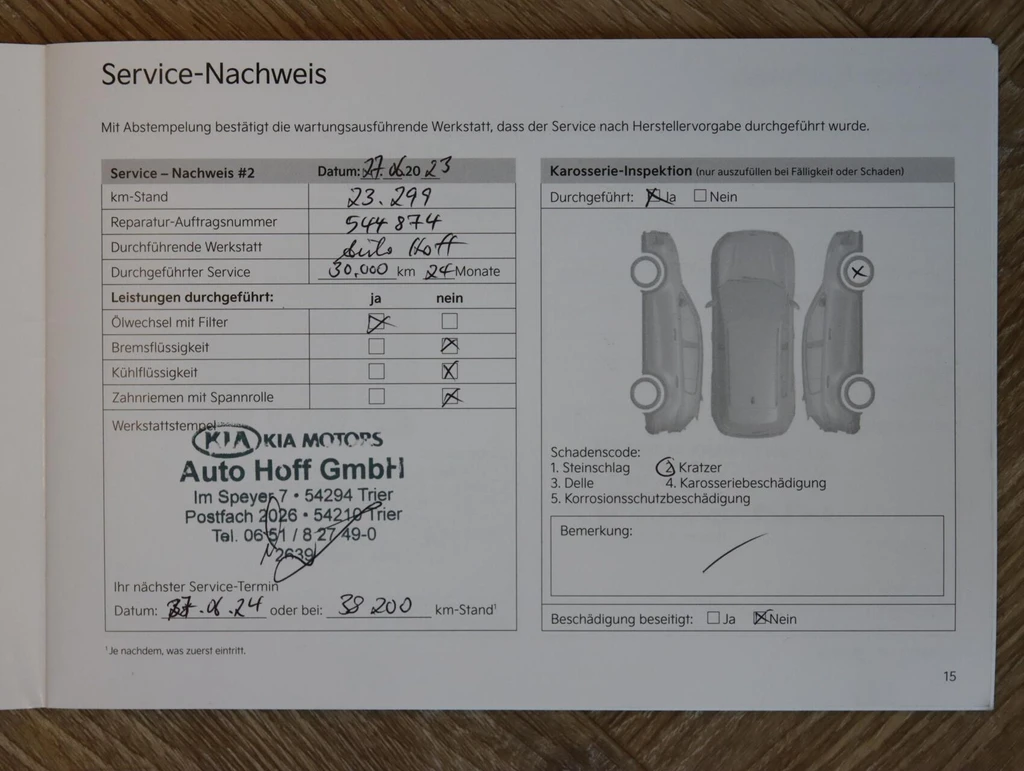 Service-Nachweis
Mit Abstempelung bestätigt die wartungsausführende Werkstatt, dass der Service nach Herstellervorgabe durchgeführt wurde.
Service – Nachweis #2 Datum: 27.06.2023
km-Stand 23.299
Reparatur-Auftragsnummer 544874
Durchführende Werkstatt Auto Hoff
Durchgeführter Service 30,000 km 24 Monate
Leistungen durchgeführt: ja nein
Ölwechsel mit Filter
Bremsflüssigkeit
Kühlflüssigkeit
Zahnriemen mit Spannrolle
Werkstattstempel
KIA KIA MOTORS
Auto Hoff GmbH
Im Speyer 7 • 54294 Trier
Postfach 2026 • 54210 Trier
Tel. 06 51 / 8 27 49-0
N2639
Ihr nächster Service-Termin
Datum: 27.06.24 oder bei: 38 200 km-Stand¹
¹Je nachdem, was zuerst eintritt.
Karosserie-Inspektion (nur auszufüllen bei Fälligkeit oder Schaden)
Durchgeführt: Ja Nein
Schadenscode:
1. Steinschlag 2 Kratzer
3. Delle 4. Karosseriebeschädigung
5. Korrosionsschutzbeschädigung
Bemerkung:
Beschädigung beseitigt: Ja Nein
15